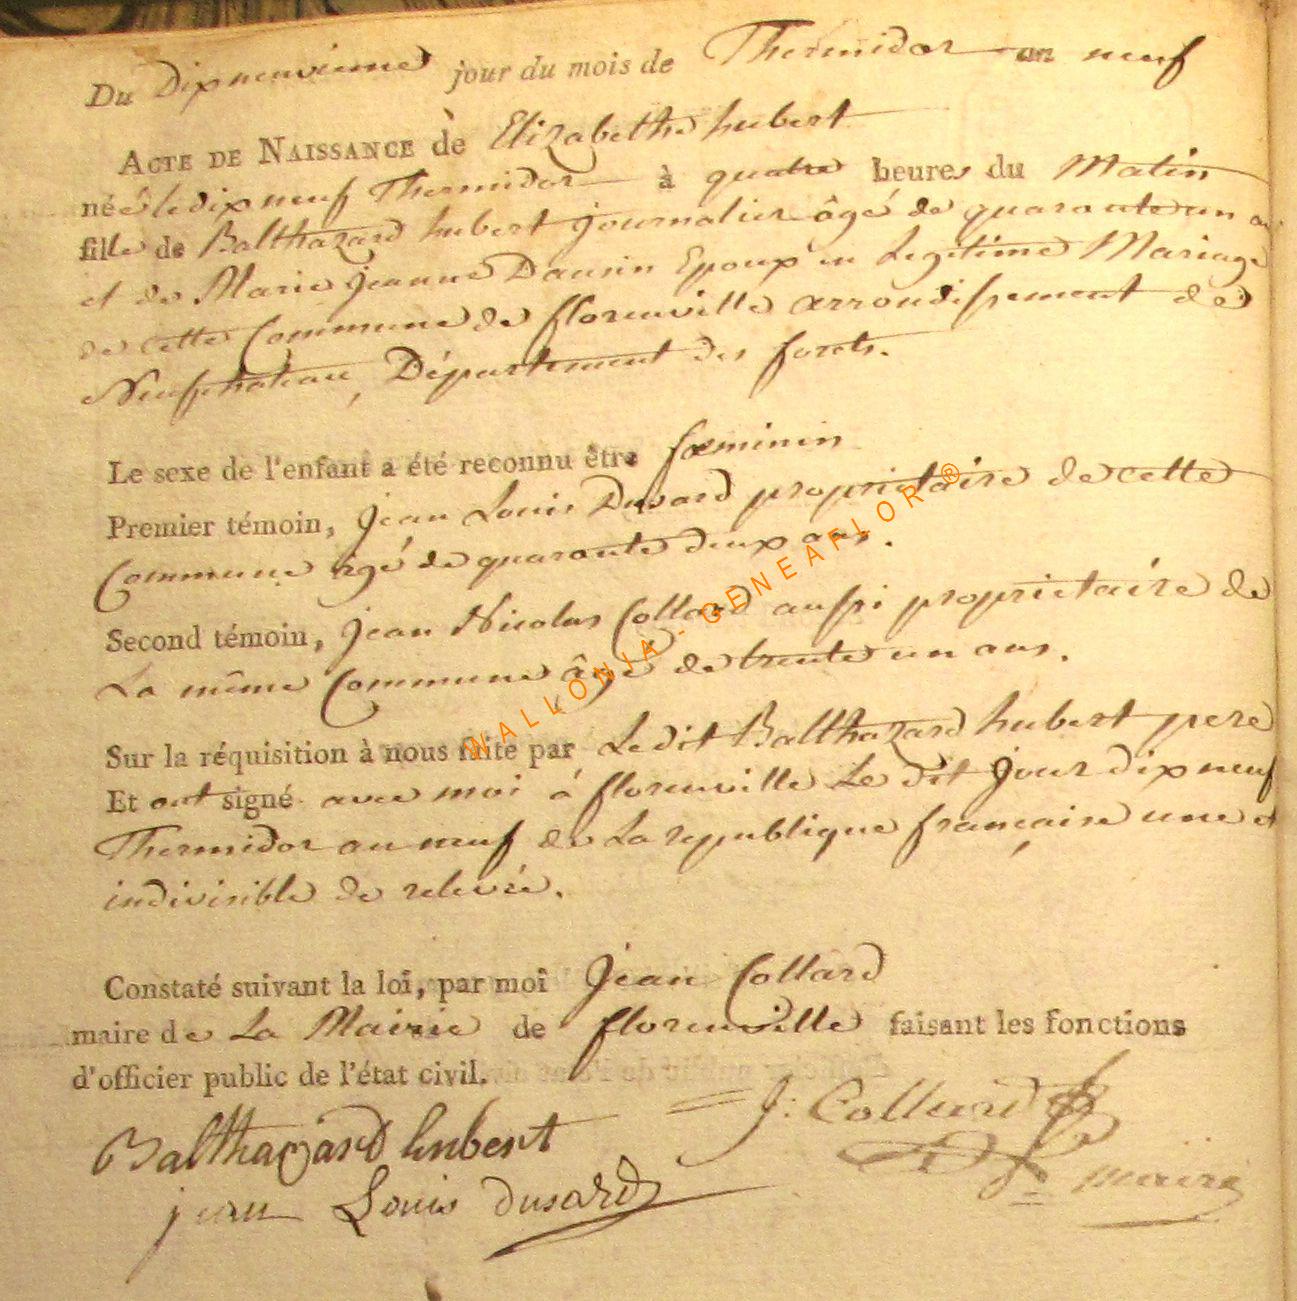 Du Dixneuvieme jour du mois de Thermidor an neuf
ACTE DE NAISSANCE de Elizabethe hubert
née le dix neuf Thermidor à quatre heures du Matin
fille de Balthazard hubert journalier âgé de quarante un an
et de Marie jeanne Dausin Epoux en Legitime Mariage
de cette Commune de florenville arrondissement de
Neufchateau, Département des forets.
Le sexe de l'enfant a été reconnu être fœminin
Premier témoin, jean Louis Dusard proprietaire de cette
Commune âgé de quarante deux ans.
Second témoin, jean Nicolas Collard aussi proprietaire de
La même Commune âgé de trente un ans.
Sur la réquisition à nous faite par Ledit Balthazard hubert pere
Et ont signé avec moi á florenville Le dit jour dix neuf
Thermidor an neuf de La republique française une et
indivisible de relevée.
Constaté suivant la loi, par moi Jean Collard
maire de La Mairie de florenville faisant les fonctions
d'officier public de l'état civil.
J: Collard
Balthazard hubert
maire
jean Louis dusard
WALLONIA - GENEAFLOR ®